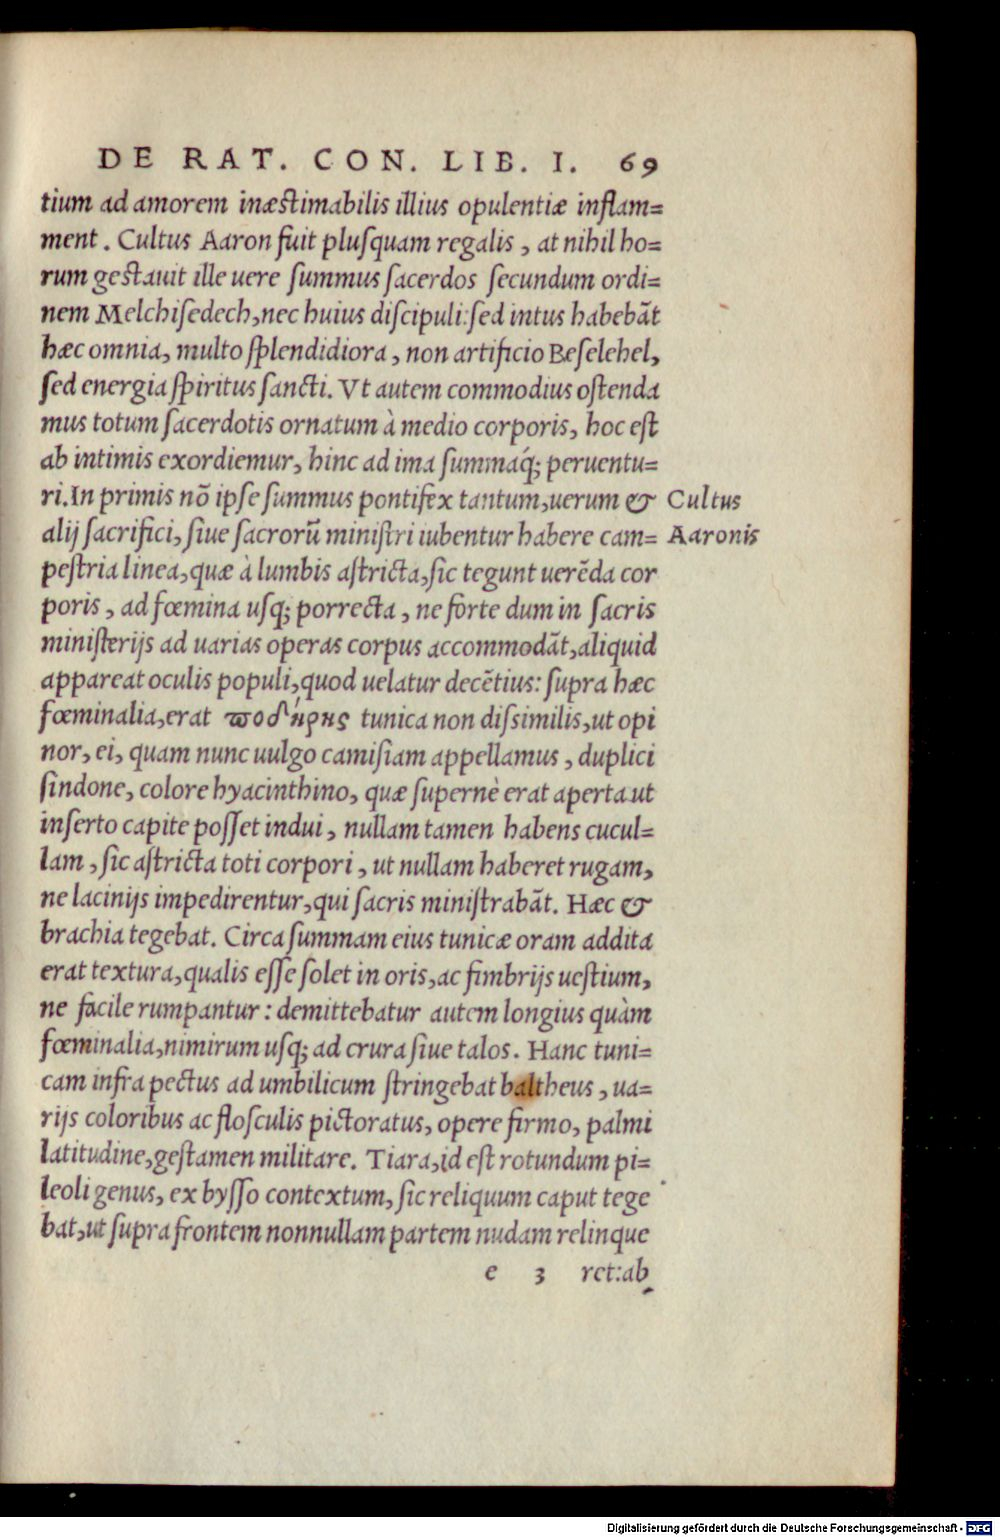 DE RAT. CON. LIB. I. 69
tium ad amorem inæstimabilis illius opulentiæ inflam=
ment. Cultus Aaron fuit pluſquam regalis, at nihil ho=
rum gestauit ille uere ſummus ſacerdos ſecundum ordi=
nem Melchiſedech, nec huius diſcipuli: ſed intus habebāt
hæc omnia, multo ſplendidiora, non artificio Beſelehel,
ſed energia ſpiritus ſancti. Vt autem commodius oſtenda
mus totum ſacerdotis ornatum à medio corporis, hoc eſt
ab intimis exordiemur, hinc ad ima ſummaq́; peruentu=
ri. In primis nō ipſe ſummus pontifex tantum, uerum & Cultus
alij ſacrifici, ſiue ſacrorū miniſtri iubentur habere cam= Aaronis
peſtria linea, quæ à lumbis aſtricta, ſic tegunt uerēda cor
poris, ad fœmina uſq; porrecta, ne forte dum in ſacris
miniſterijs ad uarias operas corpus accommodāt, aliquid
appareat oculis populi, quod uelatur decētius: ſupra hæc
fœminalia, erat ποδήρης tunica non diſsimilis, ut opi
nor, ei, quam nunc uulgo camiſiam appellamus, duplici
ſindone, colore hyacinthino, quæ ſupernè erat aperta ut
inſerto capite poſſet indui, nullam tamen habens cucul=
lam, ſic aſtricta toti corpori, ut nullam haberet rugam,
ne lacinijs impedirentur, qui ſacris miniſtrabāt. Hæc &
brachia tegebat. Circa ſummam eius tunicæ oram addita
erat textura, qualis eſſe ſolet in oris, ac fimbrijs ueſtium,
ne facile rumpantur: demittebatur autem longius quàm
fœminalia, nimirum uſq; ad crura ſiue talos. Hanc tuni=
cam infra pectus ad umbilicum ſtringebat baltheus, ua=
rijs coloribus ac floſculis pictoratus, opere firmo, palmi
latitudine, geſtamen militare. Tiara, id eſt rotundum pi=
leoli genus, ex byſſo contextum, ſic reliquum caput tege
bat, ut ſupra frontem nonnullam partem nudam relinque
e 3 ret: ab
Digitalisierung gefördert durch die Deutsche Forschungsgemeinschaft - DFG